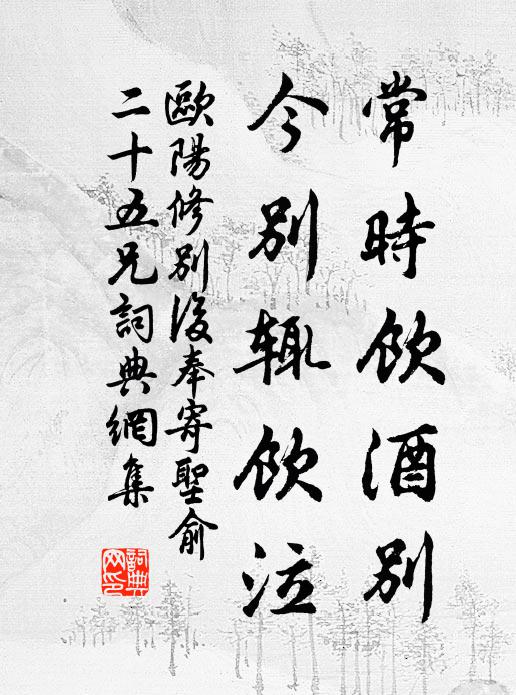 常時飲酒別
今別輒飲泣
歐陽修別後奉寄聖俞
二十五兄詞典網集
詞典網印